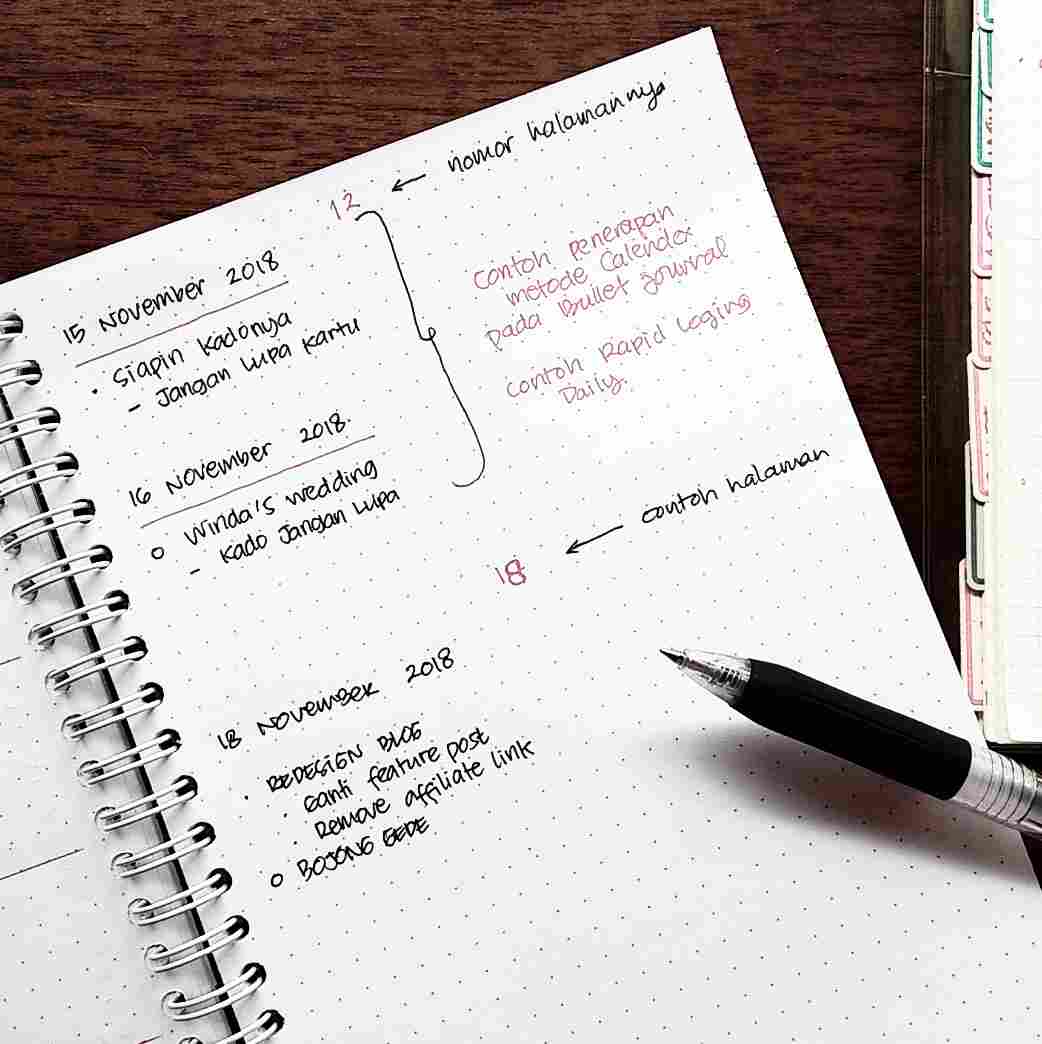 12 ← nomor halamannya
15 November 2018
• Siapin Kadonya
- Jangan Lupa Kartu
16 November 2018.
o Winda's wedding
- Kado Jangan Lupa
Contoh Penerapan
metode Calendex
pada Bullet Journal
Contoh Rapid Loging
Daily.
18 ← contoh halaman
18 NOVEMBER 2018
• REDESIGN BLOG
• Ganti feature post
• Remove affiliate link
o BOJONG GEDE